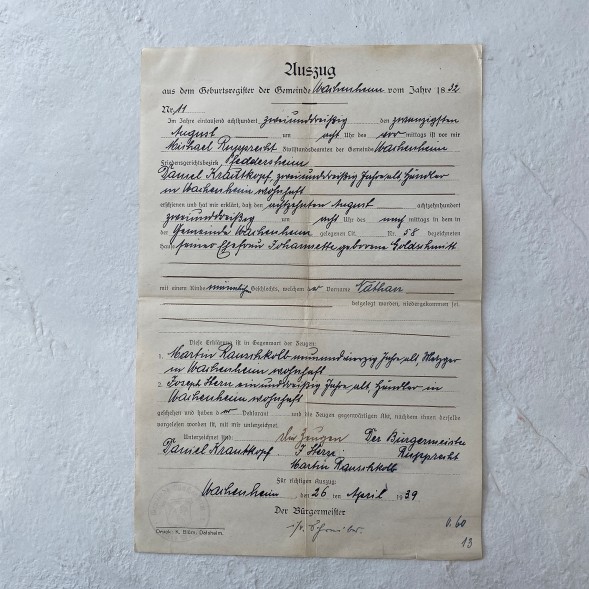 Auszug
aus dem Geburtsregister der Gemeinde Wachenheim vom Jahre 1832
Nr. 11
Im Jahre eintausend achthundert zweiunddreißig den zwanzigsten
August um acht Uhr des vor mittags ist vor mir
Michael Rupprecht Zivilstandsbeamten der Gemeinde Wachenheim
Friedensgerichtsbezirk, Pfeddersheim
Daniel Krautkopf, zweiunddreißig Jahre alt, Händler
in Wachenheim wohnhaft
erschienen und hat mir erklärt, daß den achtzehnten August achtzehnhundert
zweiunddreißig um acht Uhr des nach mittags in dem in
der Gemeinde Wachenheim gelegenen Ort. Nr. 58 bezeichneten
Hause seiner Ehefrau Johannette geborene Goldschmitt
mit einem Kinde männlich Geschlechts, welchem er Vorname Nathan
beigelegt worden, niedergekommen sei.
Diese Erklärung ist in Gegenwart der Zeugen:
1. Martin Rauschkolb neunundvierzig Jahre alt, Metzger
in Wachenheim wohnhaft
2. Joseph Stern einunddreißig Jahre alt Händler in
Wachenheim wohnhaft
geschehen und haben der Deklarant und die Zeugen gegenwärtigen Akt, nachdem ihnen derselbe
vorgelesen worden ist, mit mir unterzeichnet.
Unterzeichnet sind: Die Zeugen Der Bürgermeister
Daniel Krautkopf J Stern Rupprecht
Martin Rauschkolb
Für richtigen Auszug:
Wachenheim, den 26 ten April 1939
Der Bürgermeister
i/v. Schreiber.
0.60
Druck: K. Dalsheim.
13